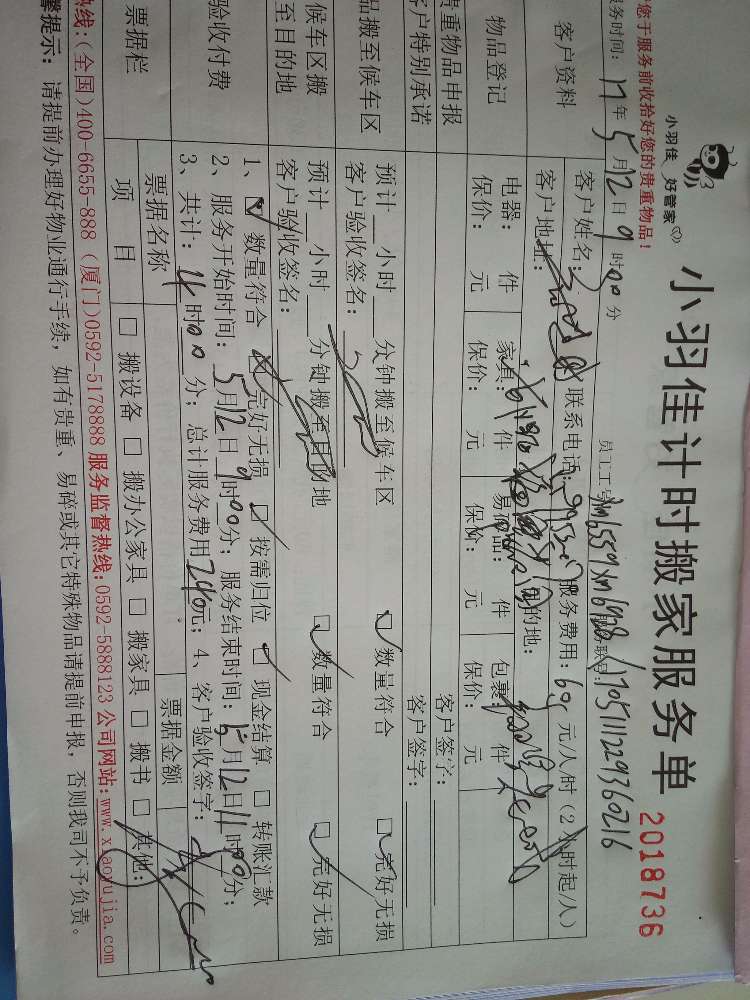 小羽佳 好管家
小羽佳计时搬家服务单 2018736
您于服务前收拾好您的贵重物品！
务时间：17年5月12日9时00分 员工工号 联号： 1705111229360216
客户资料 客户姓名： 联系电话： 服务费用：60 元/人/时（2小时起/人）
客户地址： 目的地：
物品登记 电器： 件 家具： 件 易碎品： 件 包裹： 件
保价： 元 保价： 元 保价： 元 保价： 元
贵重物品申报 客户签字：
客户特别承诺 客户签字：
品搬至候车区 预计 小时 分钟搬至候车区 数量符合 完好无损
客户验收签名：
候车区搬至目的地 预计 小时 分钟搬至目的地 数量符合 完好无损
客户验收签名：
验收付费 1、 数量符合 完好无损 按需归位 现金结算 转账汇款
2、服务开始时间：5月12日9时00分；服务结束时间：5月12日11时00分；
3、共计：4时00分；总计服务费用240元；4、客户验收签字：
票据栏 票据名称 票据金额
项 目 搬设备 搬办公家具 搬家具 搬书 其他：
热线：(全国)400-6655-888 (厦门)0592-5178888 服务监督热线:0592-5888123 公司网站：www.xiaoyujia.com
馨提示：请提前办理好物业通行手续，如有贵重、易碎或其它特殊物品请提前申报，否则我司不予负责。